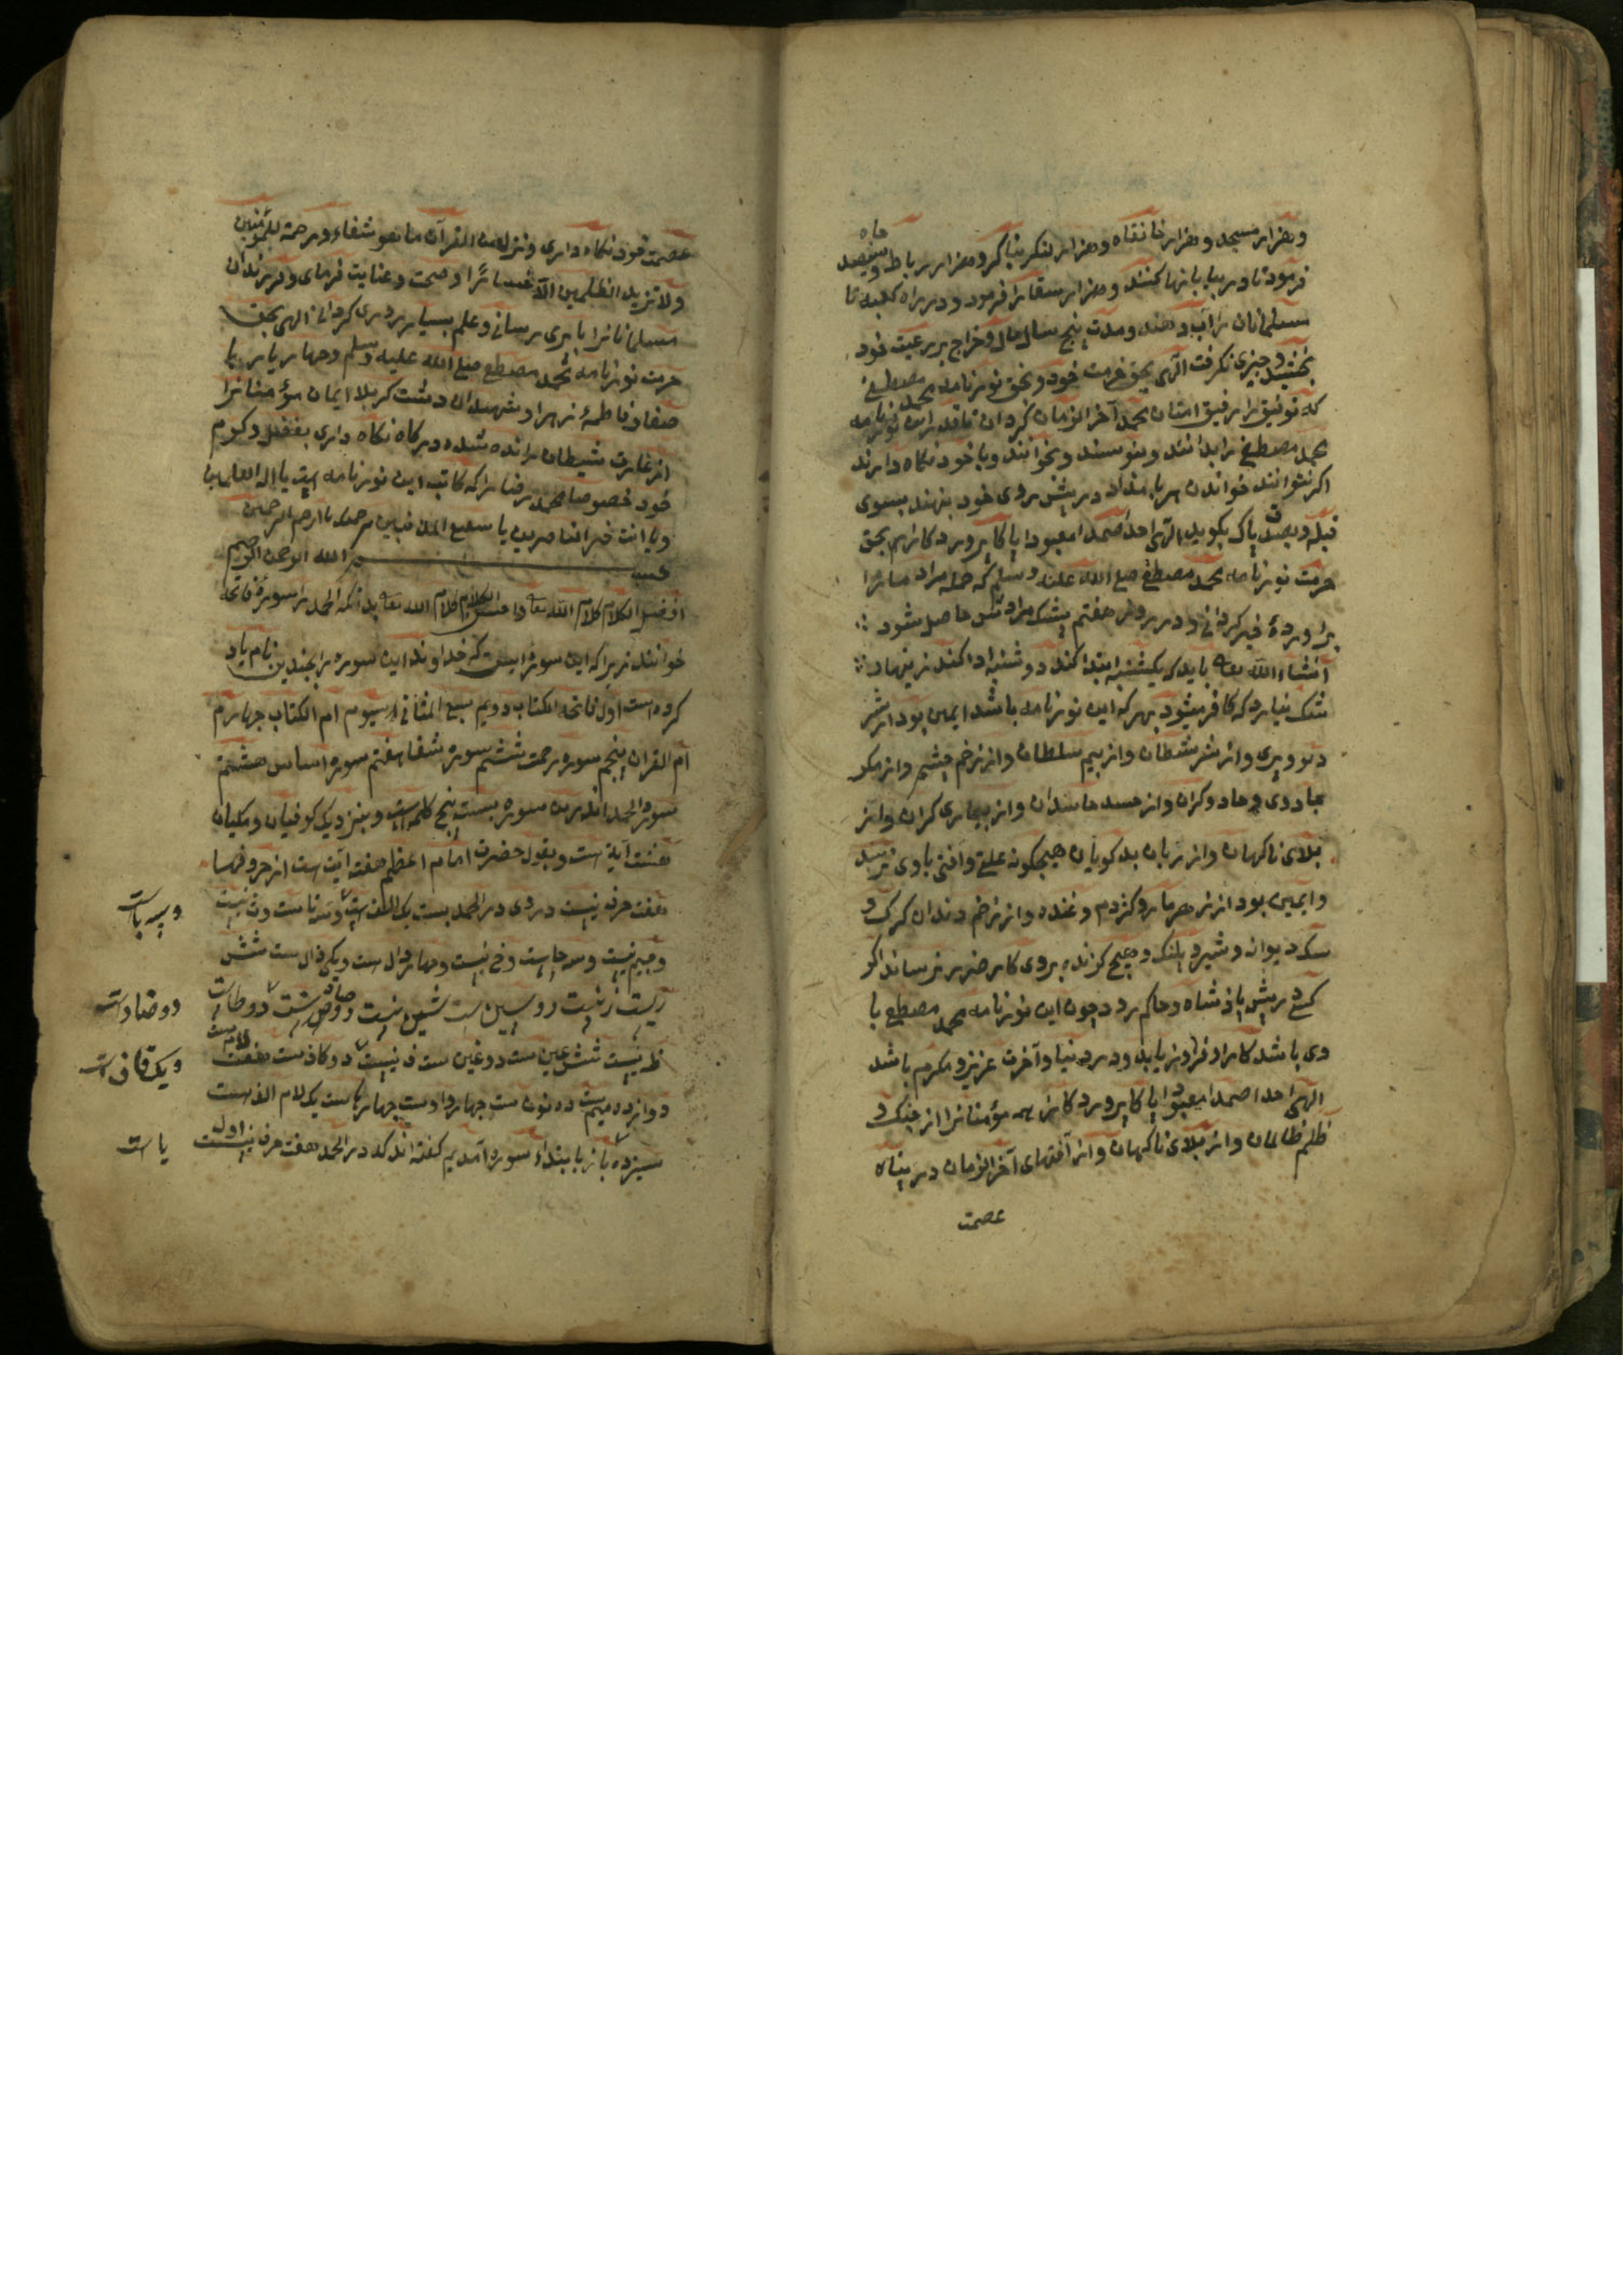 وهزار مسجد وهزار خانقاه وهزار لنکر بنا کرد وهزار رباط وسیصد چاه
فرمود تا در بیابانها کنند وهزار سقا را فرمود ودر راه کعبه تا
مسلمانان را آب دهند ومدت پنج سال مال وخراج بر رعیت خود
بخشید وچیزی نکرفت الهی بحق حرمت خود وبحق نورنامه محمد مصطفی
که توفیق را رفیق امتان محمد آخر الزمان کردان تا قدر این نورنامه
محمد مصطفی را بدانند وبنویسند وبخوانند وبا خود نکاه دارند
اکر نتوانند خواندن هر بامداد در پیش روی خود بنهند بسوی
قبله وبصدق پاک بکوید الهی احدا صمدا معبودا پاکا پروردکارا بحق
حرمت نورنامه محمد مصطفی صلی الله علیه وسلم که جمله مراد ما را
برآورده خیر کردانی ودر روز هفتم بیشک مرادش حاصل شود
انشاء الله تعا باید که یکشنبه ابتدا کند دوشنبه ادا کند زینهار
شک نیارد که کافر میشود هر که این نورنامه باشد ایمن بود از شر
دیو وپری واز شر شیطان واز بیم سلطان واز زخم چشم واز مکر
جادوی وجادوکران واز حسد حاسدان واز بیماری کران واز
بلای ناکهان واز زبان بدکویان هیچکونه علتی وآفتی باوی نرسد
وایمن بود از زهر مار وکژدم وغنده واز زخم دندان کرک و
سک دیوانه وشیر وپلنک وهیچ کزنده بروی کار ضرر نرساند اکر
کسی در پیش پادشاه وحاکم رود چون این نورنامه محمد مصطفی با
وی باشد کار او فزاد یابد ودر دنیا وآخرت عزیز ومکرم باشد
الهی احدا صمدا معبودا پاکا پروردکارا همه مؤمنانرا از جنک و
ظلم ظالمان واز بلای ناکهان واز آفتهای آخر الزمان در پناه
عصمت
عصمت خود نکاه داری وننزل من القرآن ما هو شفاء ورحمة للمؤمنین
ولا یزید الظلمین الا خسارا وصحت وعنایت فرمای وفرزندان
مسلمانانرا بابری رسانی وعلم بسیار روزی کردانی الهی بحق
حرمت نورنامه محمد مصطفی صلی الله علیه وسلم وچهار یار با
صفا وفاطمه زهرا وشهیدان دشت کربلا ایمان مؤمنانرا
از غارت شیطان رانده شده درکاه نکاه داری بفضل وکرم
خود خصوصا محمد رضا را که کاتب این نورنامه است یا اله العالمین
ویا انت خیر الناصرین یا سمیع المذنبین برحمتک یا ارحم الراحمین
بسم الله الرحمن الرحیم
افضل الکلام کلام الله تعا واحسن الکلام کلام الله تعا بدانکه الحمد را سوره فاتحه
خوانند زیرا که این سوره ایست که خداوند این سوره را بچندین نام یاد
کرده است اول فاتحه الکتاب دویم سبع المثانی سیوم ام الکتاب چهارم
ام القرآن پنجم سوره رحمت ششم سوره شفا هفتم سوره اساس هشتم
سوره الحمد اندرین سوره بیست پنج کلمه است وبنزدیک کوفیان ومکیان
هشت آیة است وبقول حضرت امام اعظم هفت آیت است از حروفها
هفت حرف نیست در وی در الحمد بیست یک الف است وسه تا ست وث نیست
وسه با ست
وجیم نیست وسه حا ست وخ نیست وچهار دال ست ویکی ذال ست شش
ریست ز نیست دو سین ست شین نیست دو صاد ست دو طا ست
دو ضاد است
ظ نیست شش عین ست دو غین ست ف نیست دو کاف ست هفت لام ست
ویک قاف است
دوازده میم ست ده نون ست چهار واو ست چهار ها ست یک لام الف ست
سیزده باز بابتداء سوره آمدیم کفته اند که در الحمد هفت حرف نیست اول
یا است